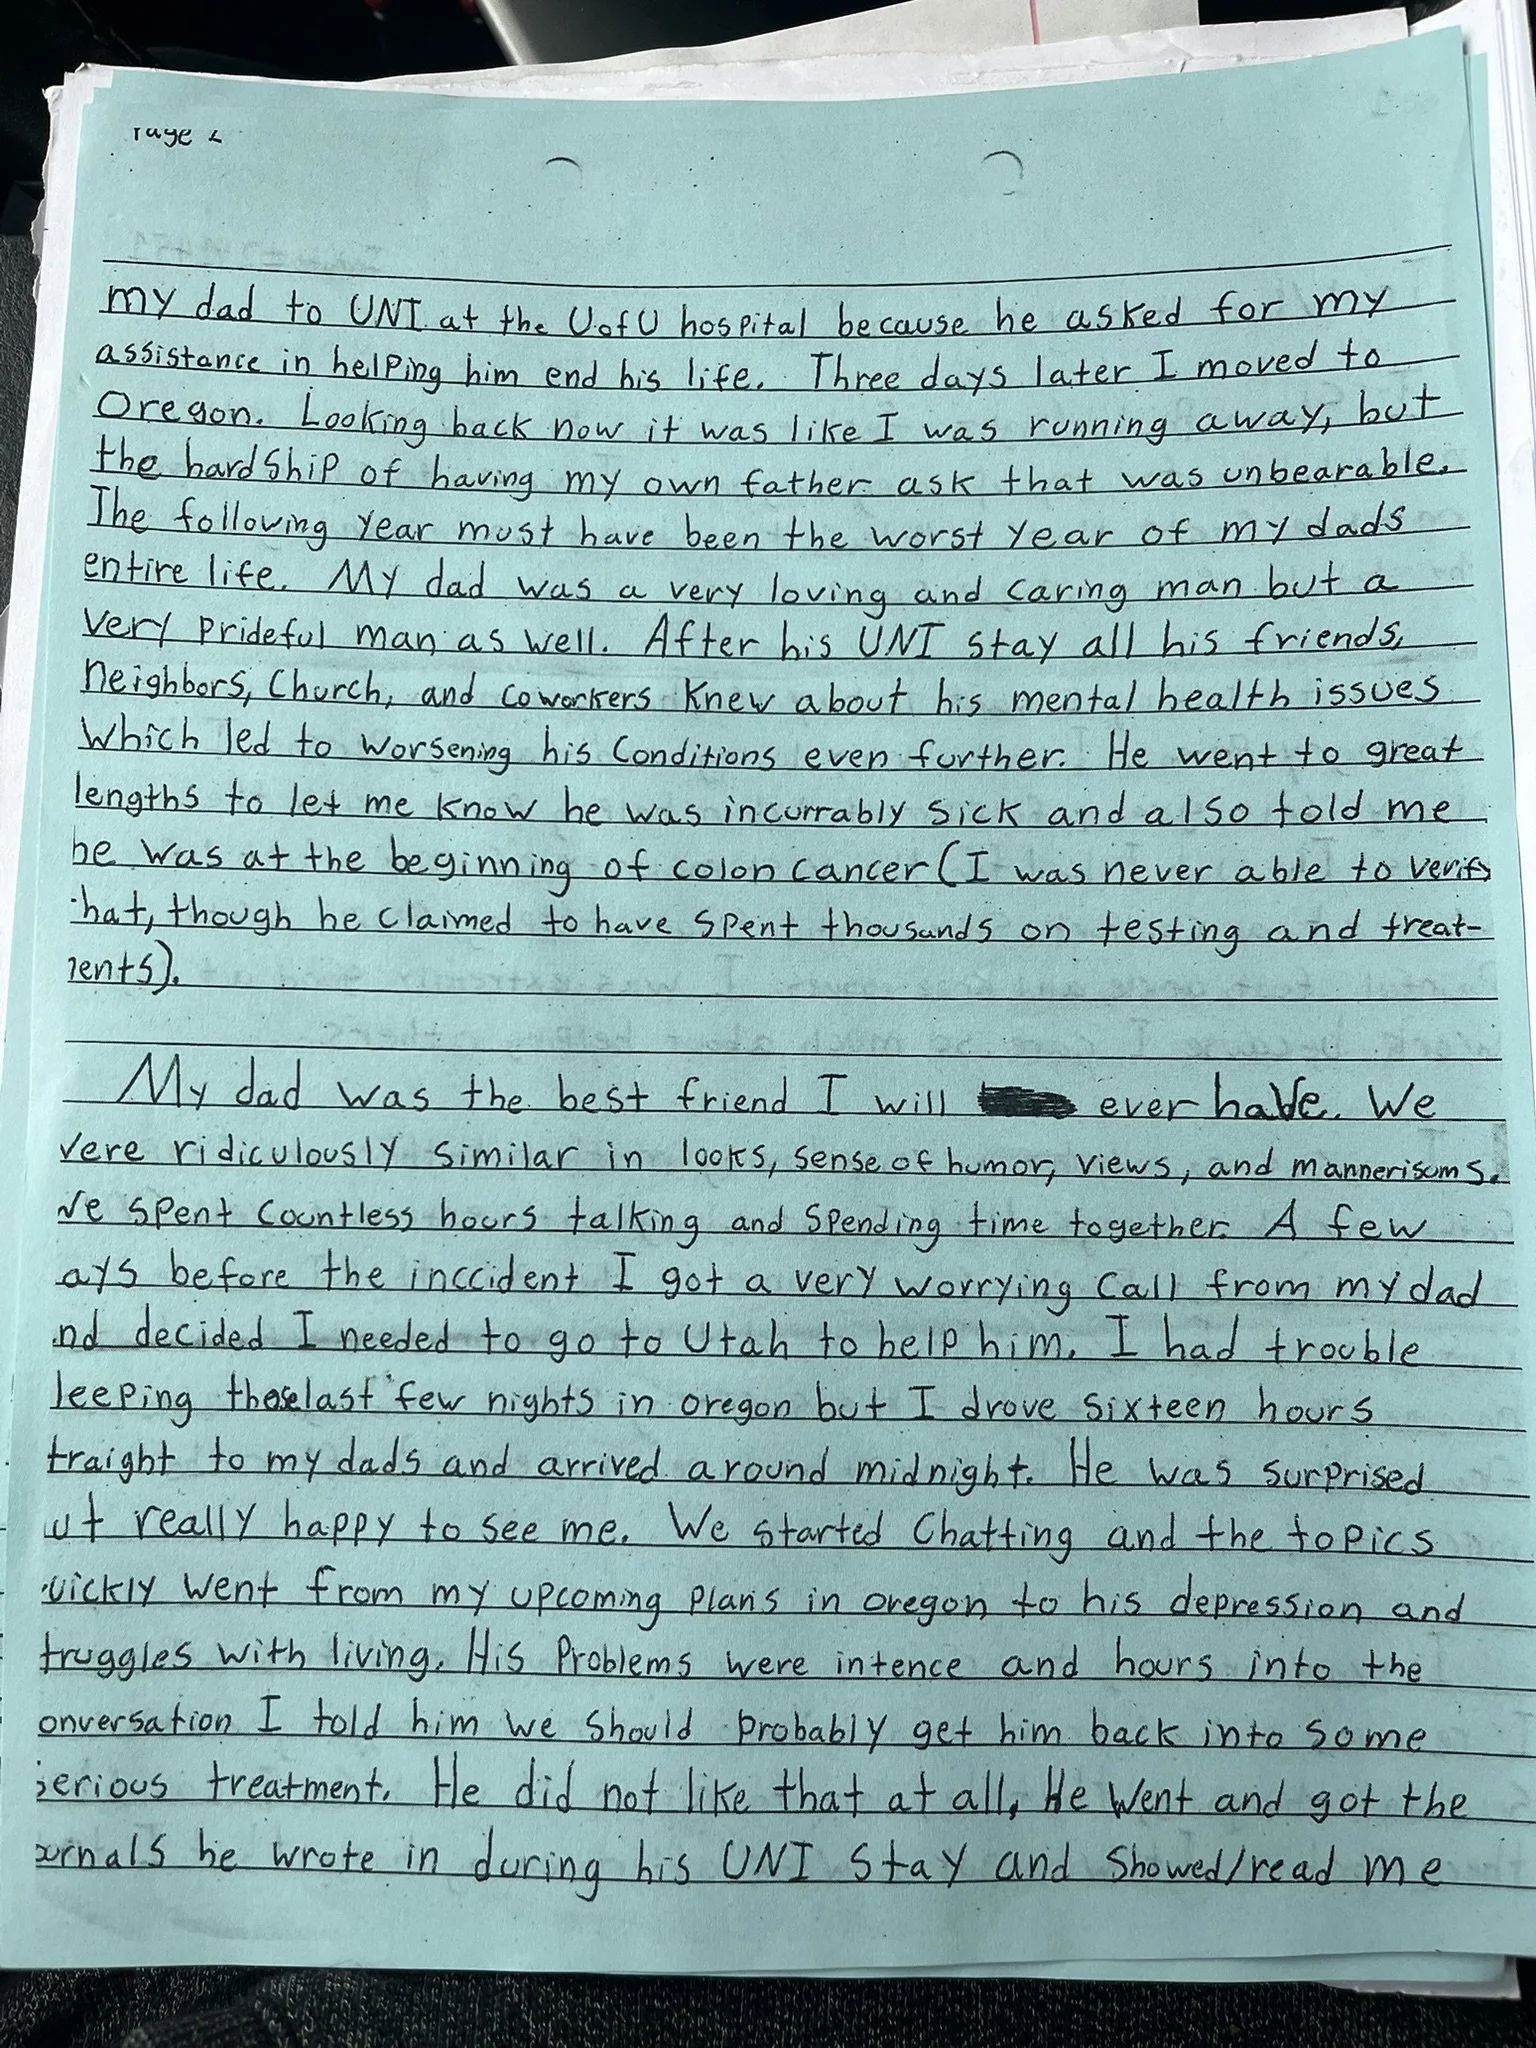 Page 2
my dad to UNI at the UofU hospital because he asked for my
assistance in helping him end his life. Three days later I moved to
Oregon. Looking back now it was like I was running away, but
the hardship of having my own father ask that was unbearable.
The following year must have been the worst year of my dads
entire life. My dad was a very loving and caring man but a
very prideful man as well. After his UNI stay all his friends,
neighbors, Church, and coworkers knew about his mental health issues
which led to worsening his conditions even further. He went to great
lengths to let me know he was incurrably sick and also told me
he was at the beginning of colon cancer (I was never able to verify
hat, though he claimed to have spent thousands on testing and treat-
ents).
My dad was the best friend I will ever have. We
were ridiculously similar in looks, sense of humor, views, and mannerisoms.
We spent countless hours talking and spending time together. A few
ays before the inccident I got a very worrying call from my dad
nd decided I needed to go to Utah to help him. I had trouble
leeping those last few nights in oregon but I drove sixteen hours
traight to my dads and arrived around midnight. He was surprised
ut really happy to see me. We started chatting and the topics
uickly went from my upcoming plans in oregon to his depression and
truggles with living. His problems were intence and hours into the
onversation I told him we should probably get him back into some
serious treatment. He did not like that at all, He went and got the
ournals he wrote in during his UNI stay and showed/read me